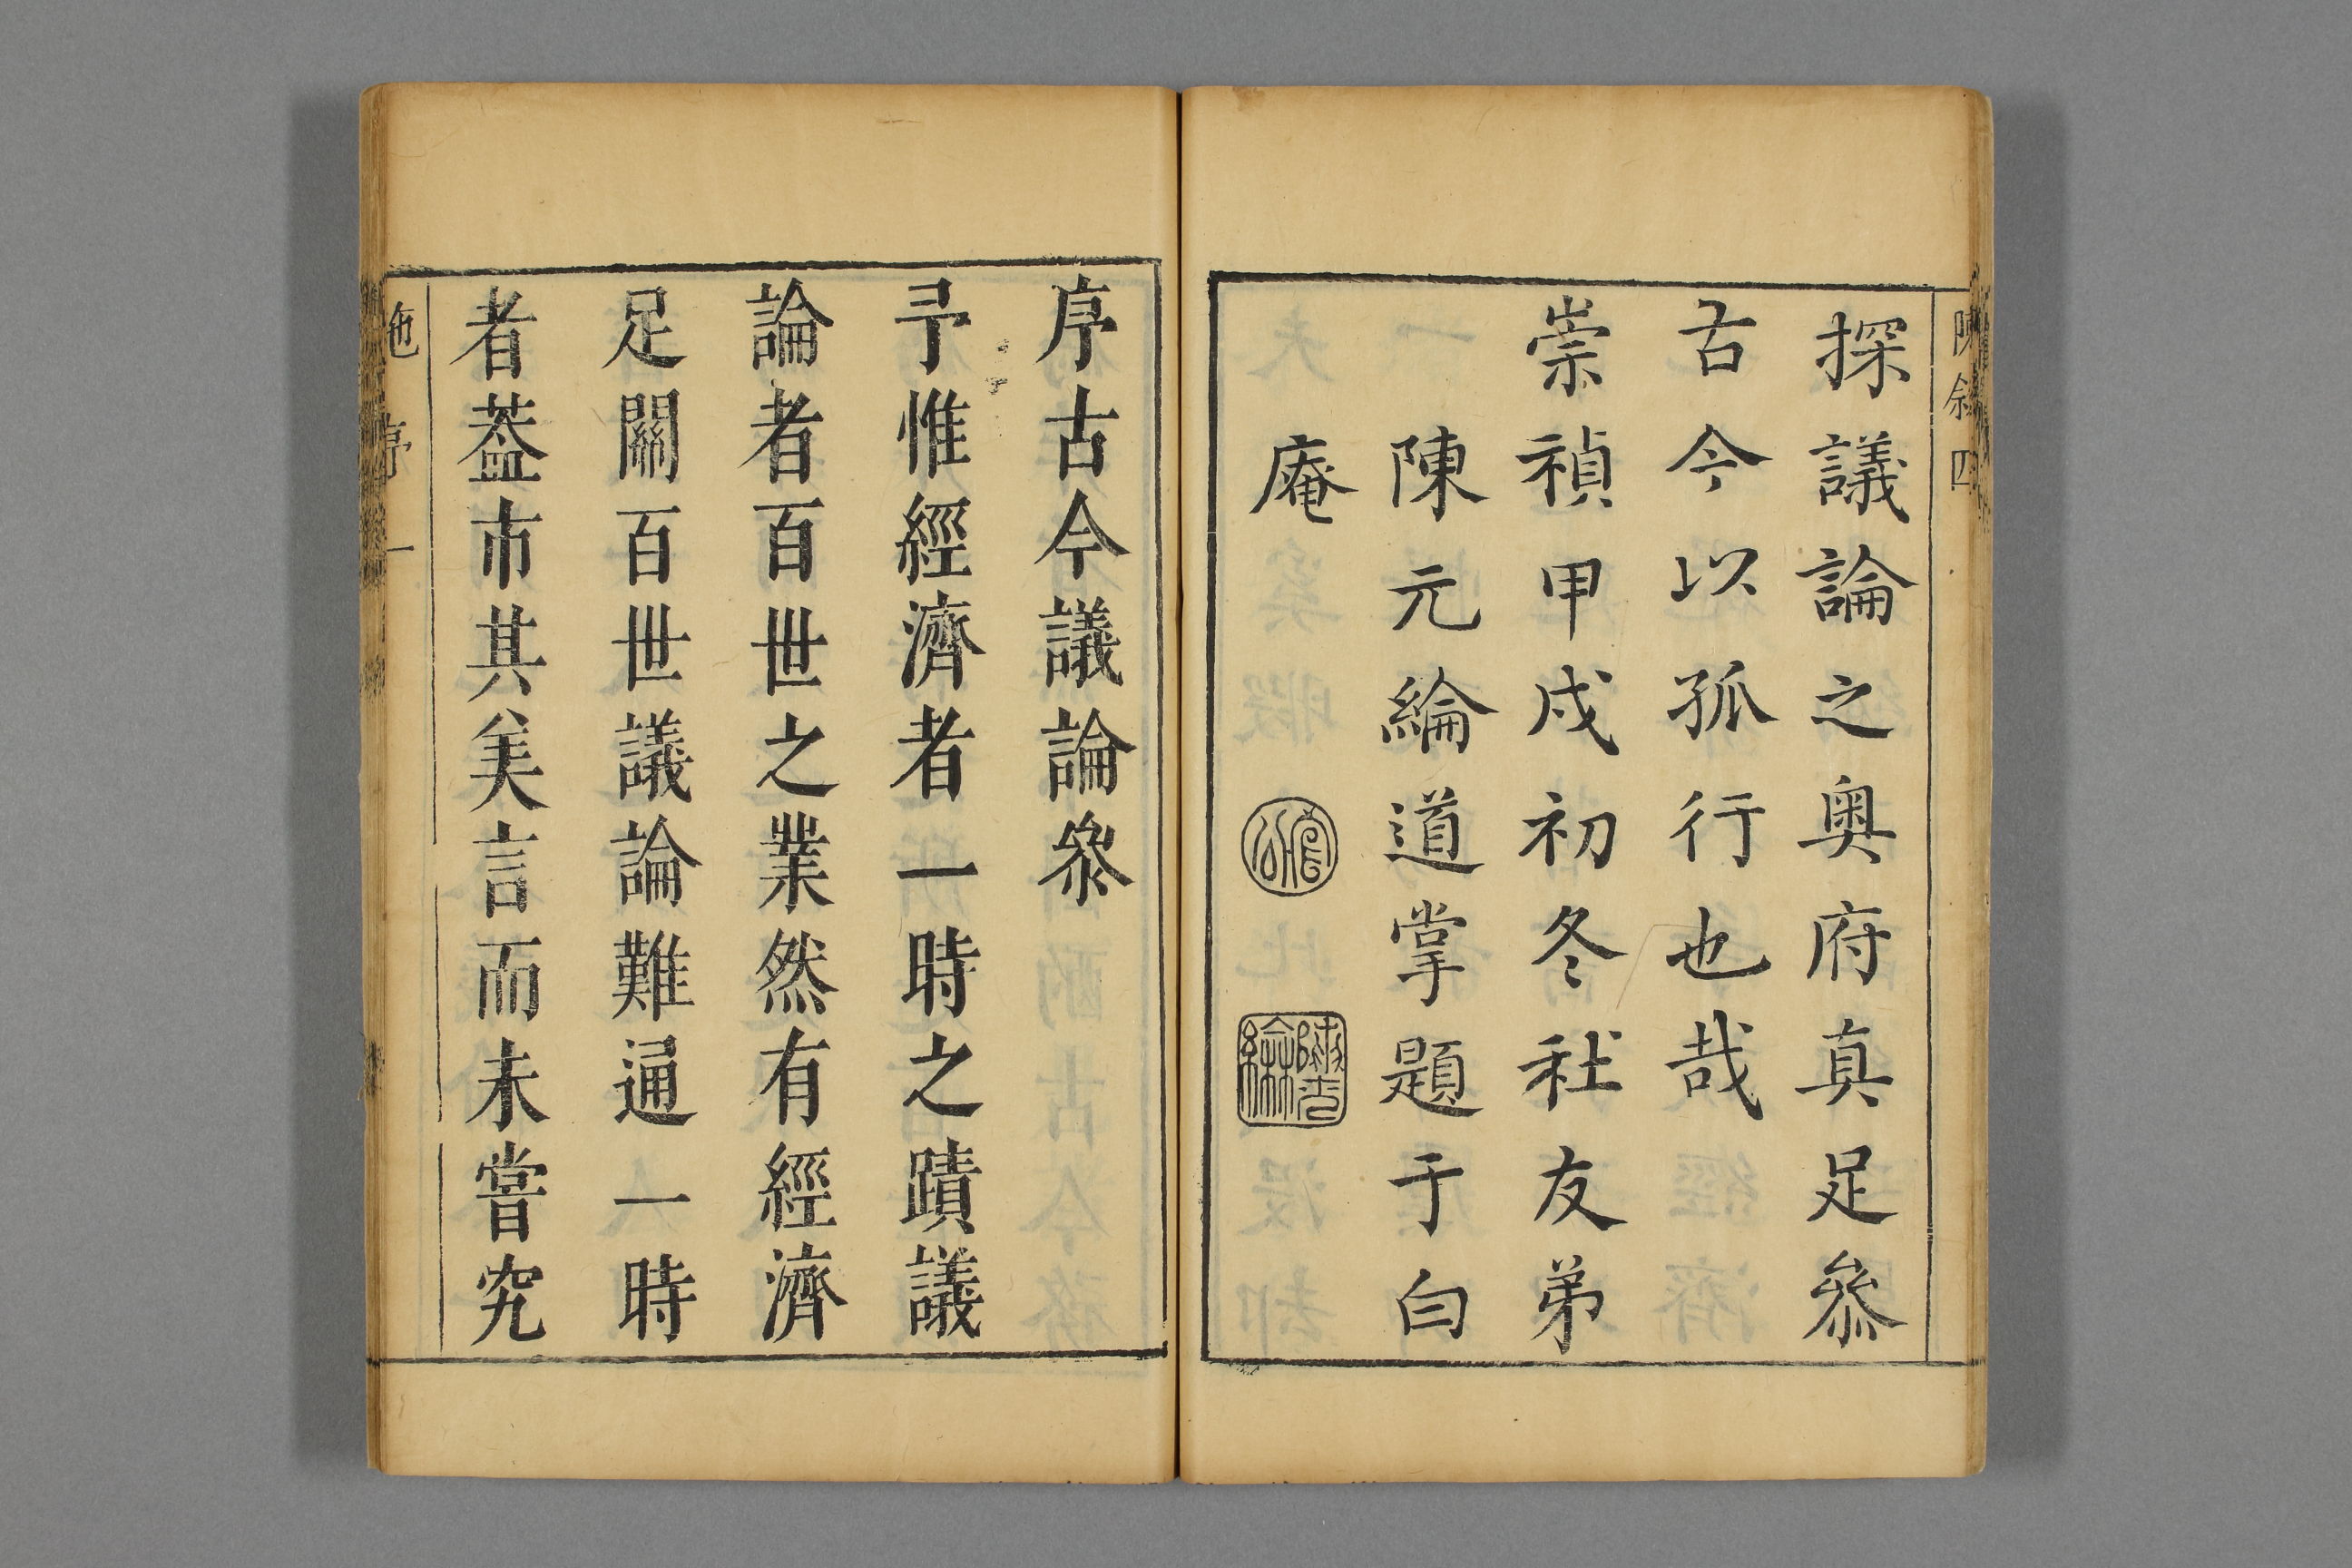 陳敘 四
探議論之奧府真足叅
古今以孤行也哉
崇禎甲戌初冬社友弟
陳元綸道掌題于白
庵
陳元綸
序古今議論叅
予惟經濟者一時之蹟議
論者百世之業然有經濟
足關百世議論難通一時
者葢市其美言而未嘗究
施序 一